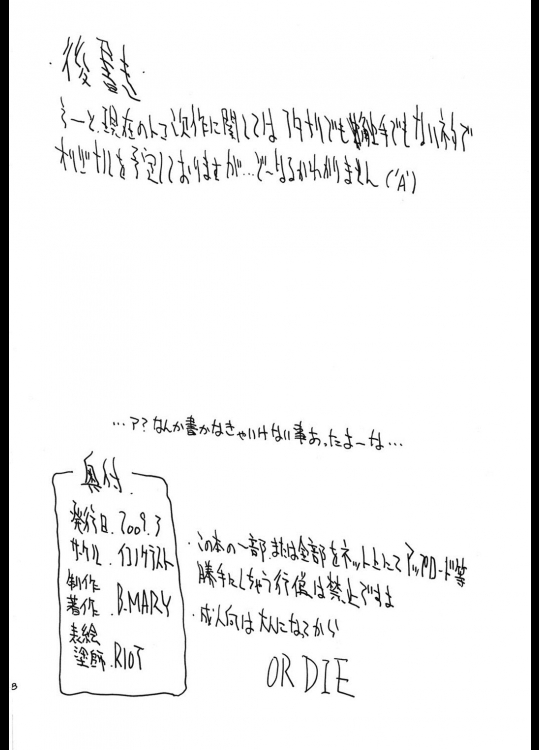 ・後書き・
えーと、現在のトコ次作に関してはフタナリでも触手でもないネタで
オリジナルを予定しておりますが…どーなるかわかりません('A`)
…ア?なんか書かなきゃいけない事あったよーな…
奥付.
発行日.2009.3
サークル.イコノクラスト
制作
著作.B.MARY
表絵
塗師.RIOT
・この本の一部または全部をネット上にてアップロード等
勝手にしちゃう行為は禁止ですよ
・成人向は大人になってから
OR DIE